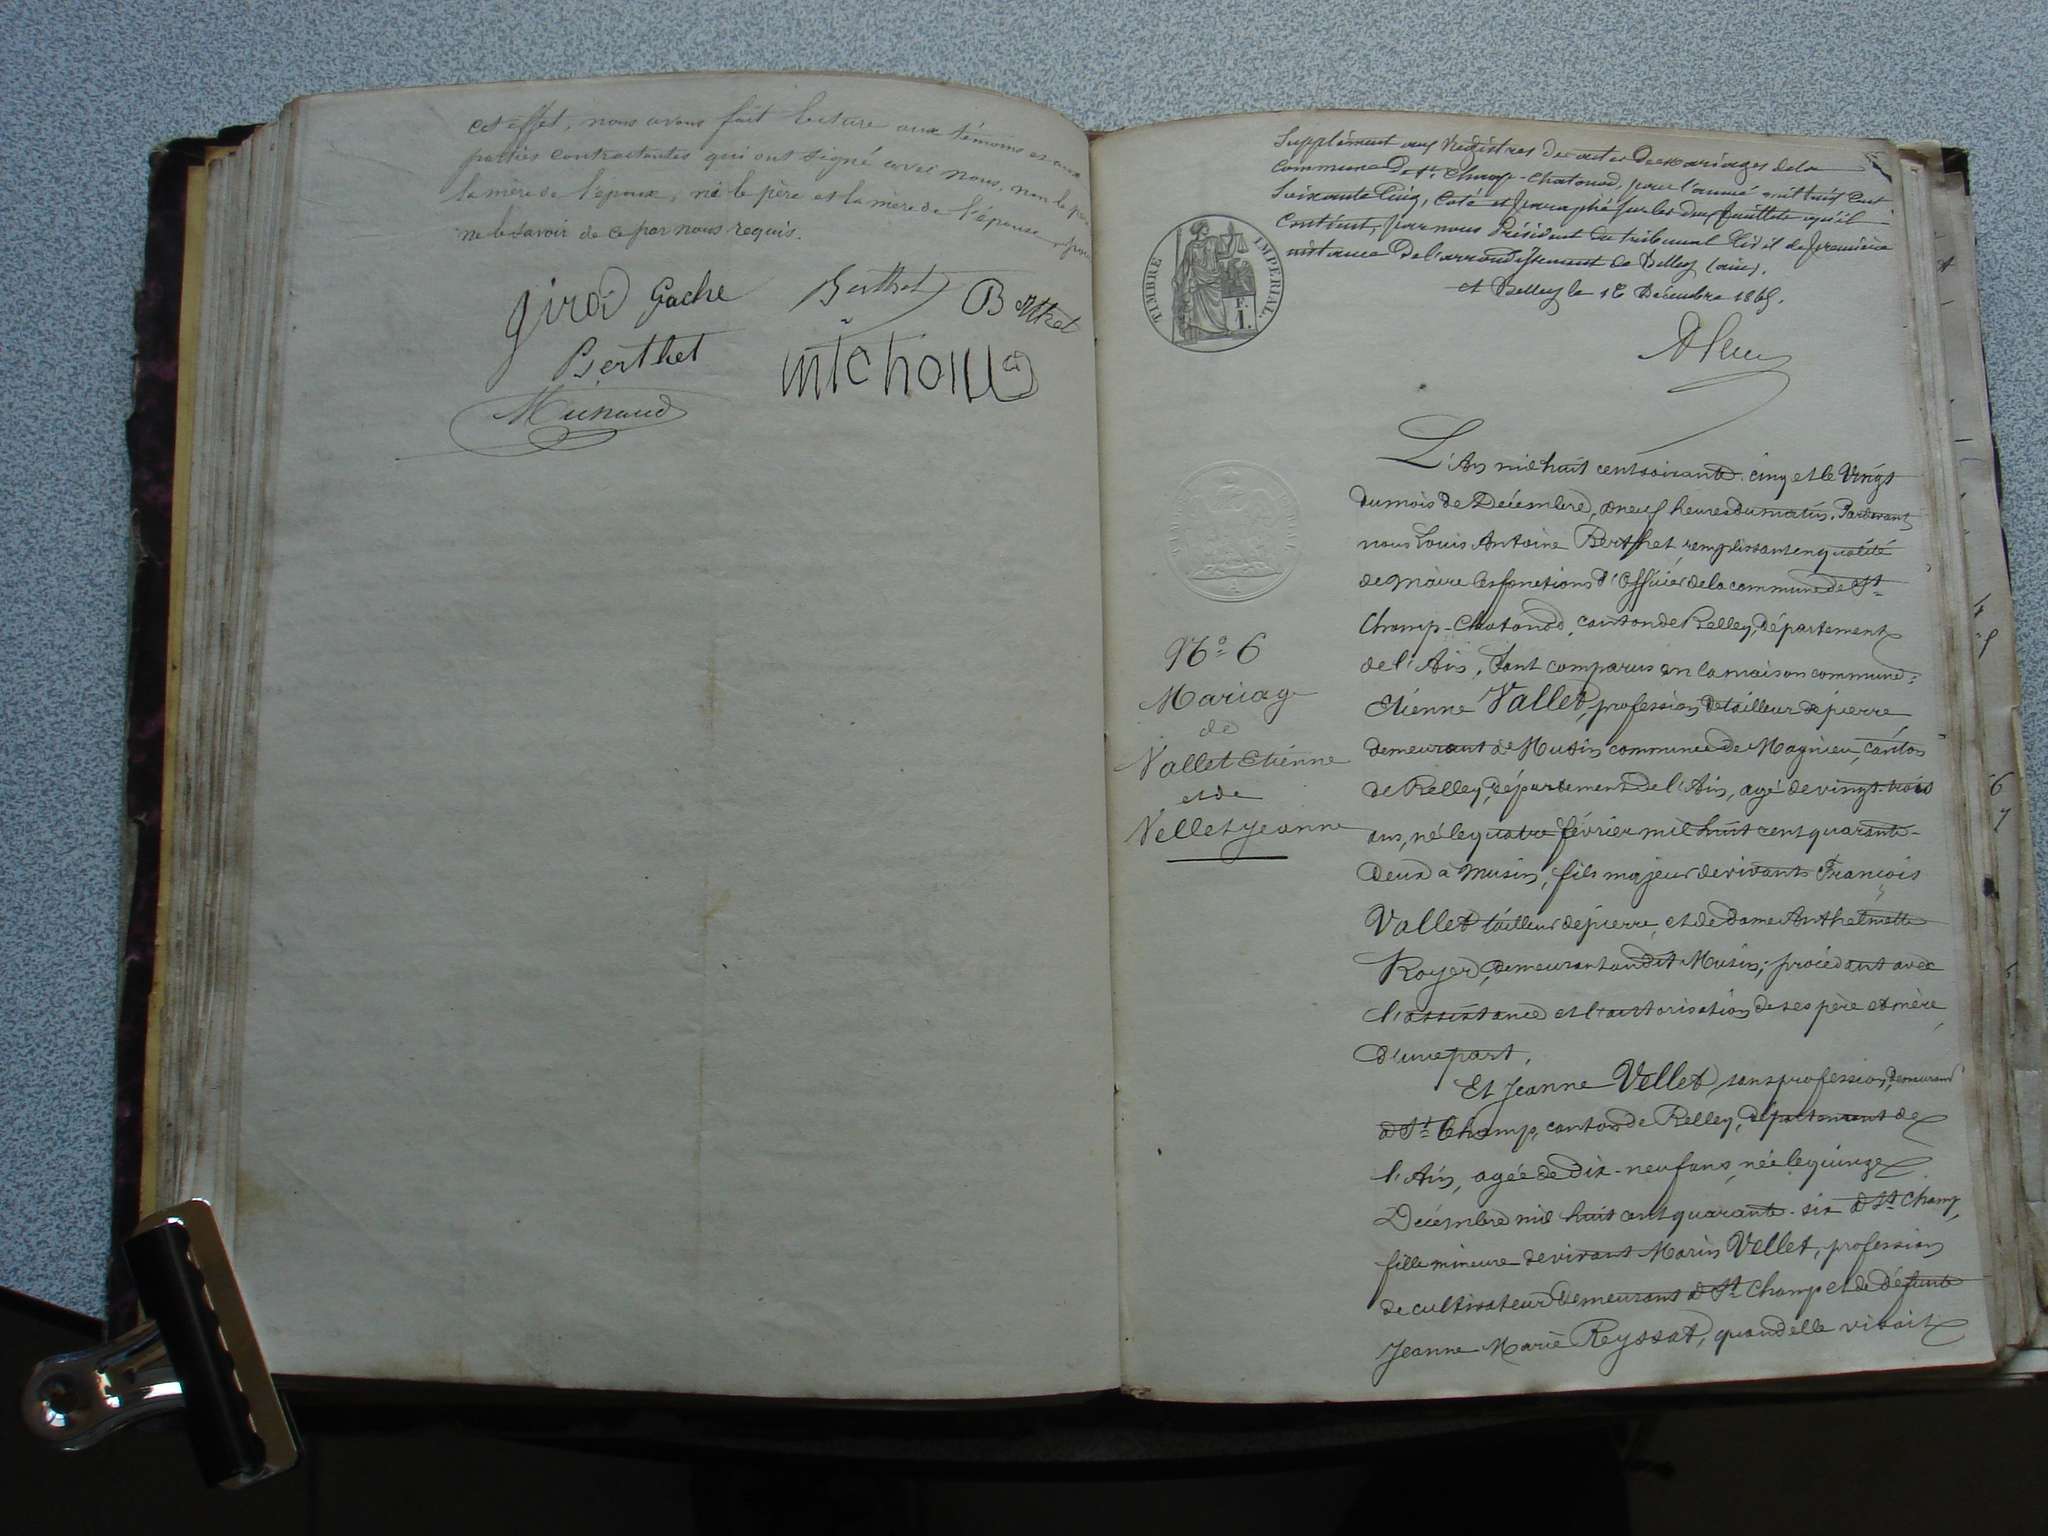 cet effet, nous avons fait lecture aux témoins et aux
parties contractantes qui ont signé avec nous, non le père
la mère de l'époux, ni le père et la mère de l'épouse, pour
ne le savoir de ce par nous requis.
girod Gache Berthet Berthet
Berthet michoud
Munaud
Supplément aux Registres des actes de mariages de la
commune de St. Champ-Chatonod, pour l'année mil huit cent
Soixante Cinq, Coté et paraphé sur les deux feuillets qu'il
contient, par nous Président du tribunal Civil de première
instance de l'arrondissement de Belley (ain).
à Belley le 18 Décembre 1865.
TIMBRE IMPERIAL
F.
1.
L'An mil huit cent soixante-cinq et le Vingt
du mois de Décembre, à neuf heures du matin. Pardevant
nous Louis Antoine Berthet remplissant en qualité
de Maire les fonctions d'Officier de la commune de St
Champ-Chatonod, canton de Belley, département
de l'Ain, Sont comparus en la maison commune:
Etienne Vallet, profession de tailleur de pierre
demeurant à Musin commune de Magnieu, canton
de Belley, département de l'Ain, agé de vingt-trois
ans, né le quatre février mil huit cent quarante-
Deux à Musin, fils majeur de vivants François
Vallet tailleur de pierre, et de dame Anthelmette
Royer, demeurant au dit Musin; procédant avec
l'assistance et l'autorisation de ses père et mère,
d'une part.
Et Jeanne Vellet, sans profession, demeurant
à St Champ, canton de Belley, département de
l'Ain, agée de dix-neuf ans, née le quinze
Décembre mil huit cent quarante-six à St Champ,
fille mineure de vivant Marin Vellet, profession
de cultivateur demeurant à St Champ et de défunte
Jeanne Marie Reyssat, quand elle vivait
No 6
Mariage
de
Vallet Etienne
et de
Vellet Jeanne
6
7